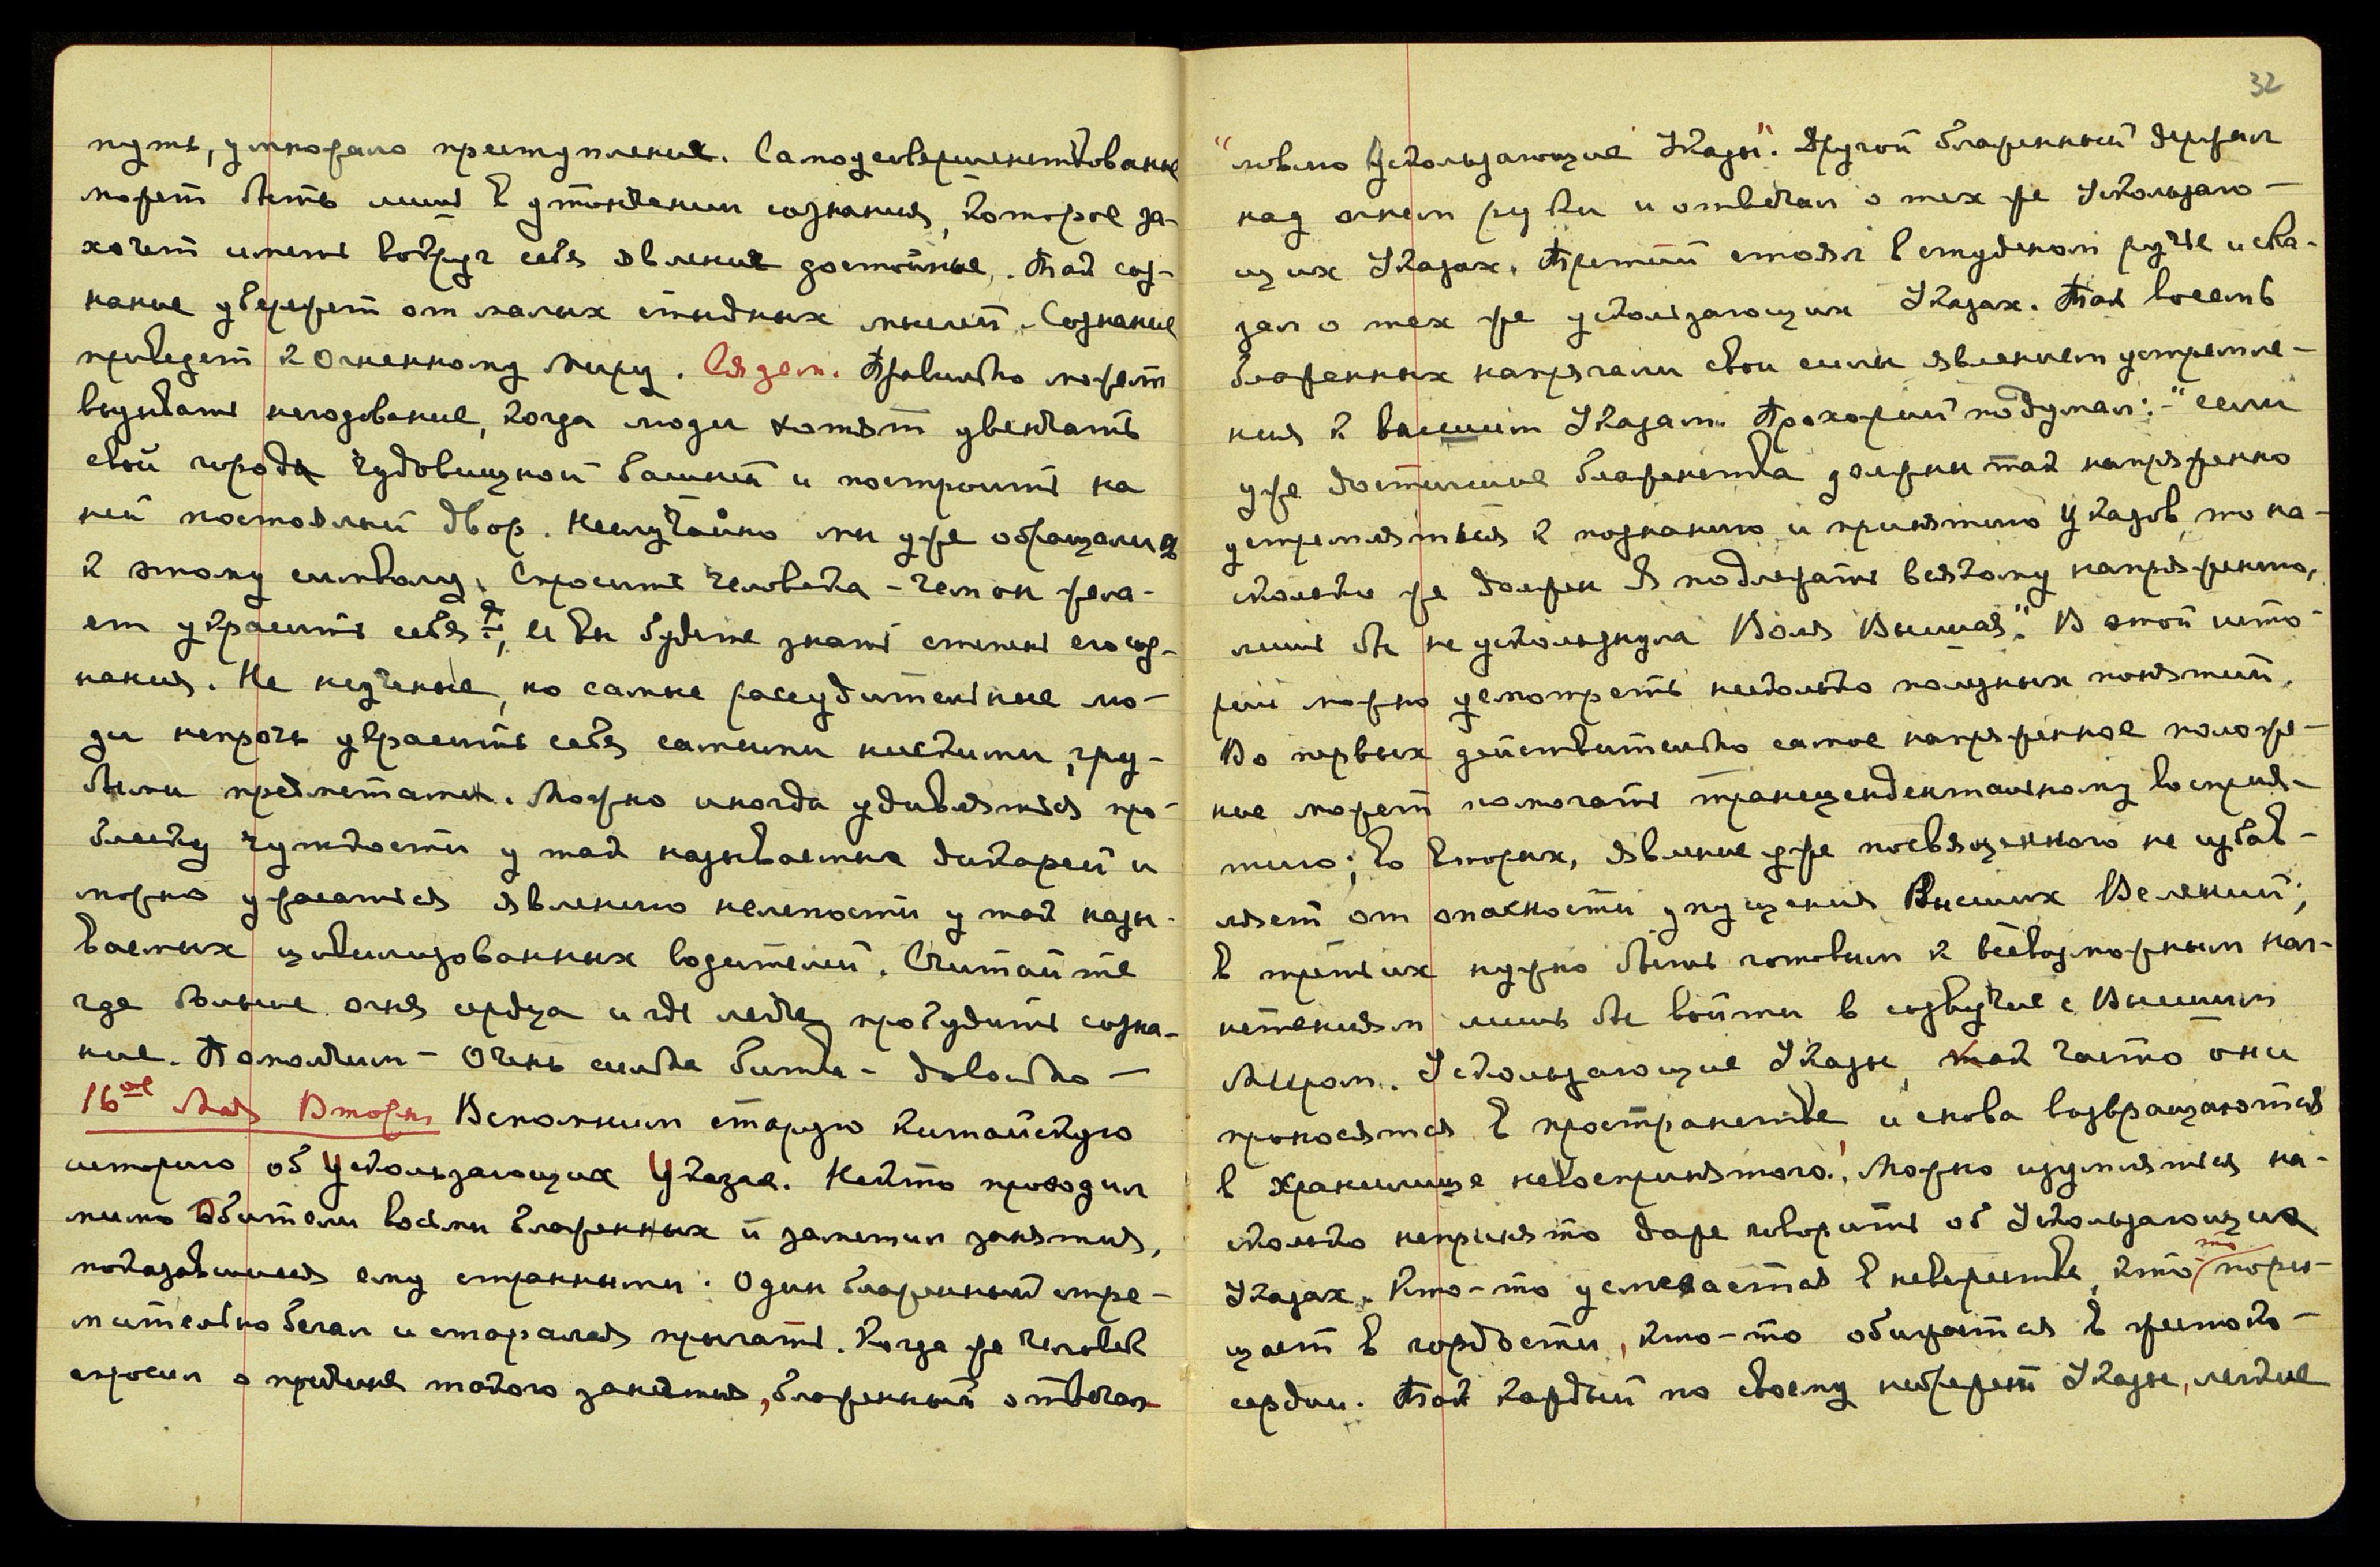 путь, умножало преступления. Самоусовершенствование
может быть лишь в утончении сознания, которое за-
хочет иметь вокруг себя явления достойные. Так соз-
нание убережет от малых стыдных мыслей. Сознание
приведет к Огненному Миру. Сядем. Правильно может
вызывать негодование, когда люди хотят увенчать
свой город чудовищной башней и построить на
ней постоялый двор. Неслучайно мы уже обращались
к этому символу. Спросите человека - чем он жела-
ет украсить себя?, и вы будете знать степень его соз-
нания. Не неученые, но самые рассудительные лю-
ди непрочь украсить себя самыми низкими, гру-
быми предметами. Можно иногда удивляться про-
блеску чуткости у так называемых дикарей и
можно ужасаться явлению нелепости у так назы-
ваемых цивилизованных водителей. Считайте
где больше огня сердца и где легче пробудить созна-
ние. Помолчим - Очень сильна битва - довольно -
16ое Мая Вторн. Вспомним старую китайскую
историю об Ускользающих Указах. Некто проходил
мимо Обители восьми блаженных и заметил занятия,
показавшиеся ему странными. Один блаженный стре-
мительно бегал и старался прыгать. Когда же человек
спросил о причине такого занятия, блаженный отвечал
32
"ловлю Ускользающие Указы". Другой блаженный держал
над огнем руки и отвечал о тех же Ускользаю-
щих Указах. Третий стоял в студеном ручье и ска-
зал о тех же ускользающих Указах. Так восемь
блаженных напрягали свои силы явлением устремле-
ния к высшим Указам. Прохожий подумал: - "если
уже достигшие блаженства должны так напряженно
устремляться к познанию и принятию Указов, то на-
сколько же должен я подлежать всякому напряжению,
лишь бы не ускользнула Воля Высшая." В этой исто-
рии можно усмотреть несколько полезных понятий.
Во первых действительно самое напряженное положе-
ние может помогать трансцендентальному восприя-
тию; во вторых, явление уже посвященного не избав-
ляет от опасности упущения Высших Велений;
в третьих нужно быть готовым к всевозможным наг-
нетениям лишь бы войти в созвучие с Высшим
Миром. Ускользающие Указы, так часто они
проносятся в пространстве и снова возвращаются
в хранилище невоспринятого! Можно изумляться на-
сколько непринято даже говорить об Ускользающих
Указах. Кто-то усмехается в невежестве, кто то пори-
цает в гордости, кто-то обижается в жестоко-
сердии. Так каждый по своему небрежет Указы, легкие